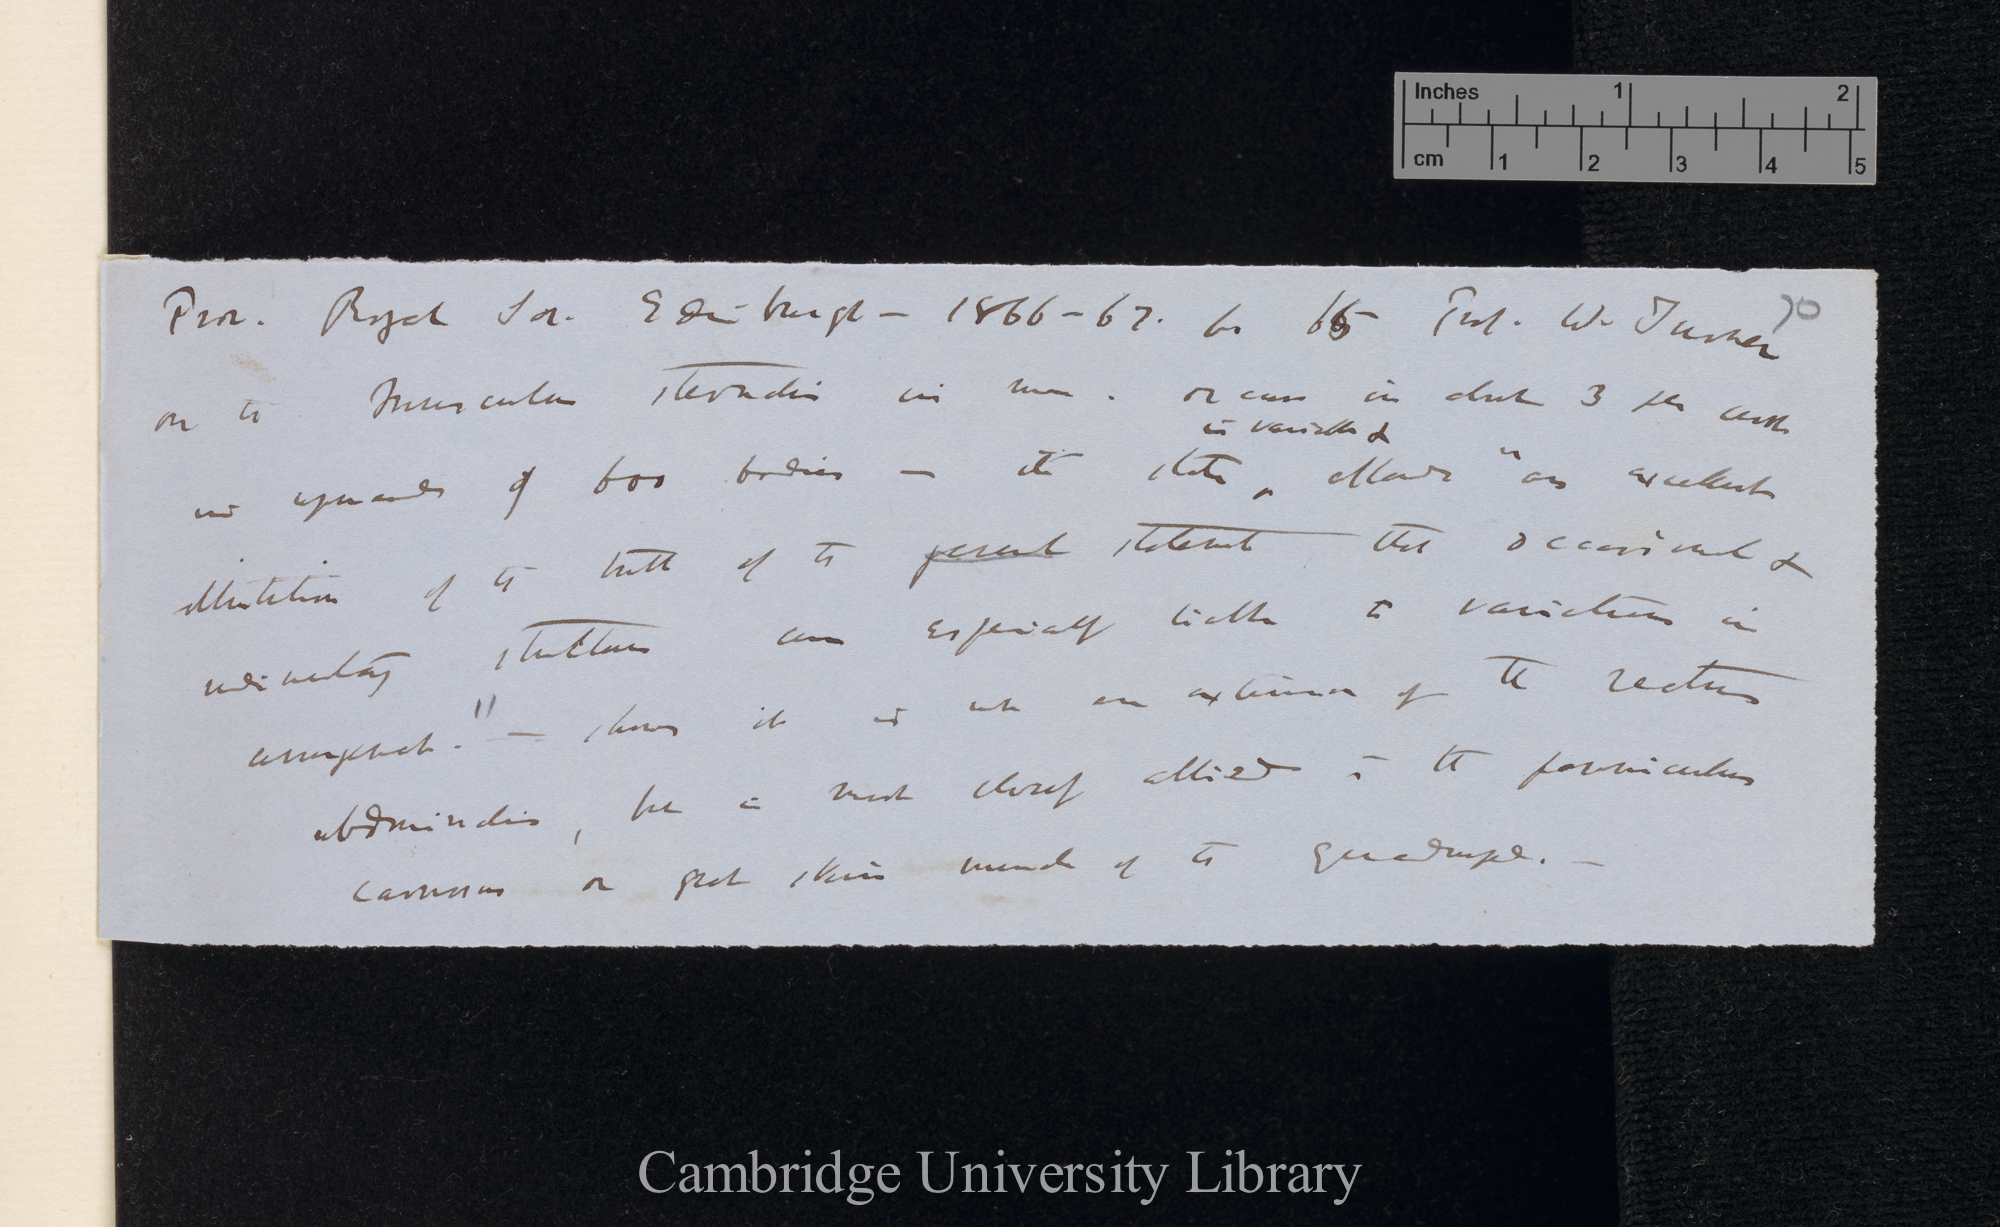 Inches 1 2
cm 1 2 3 4 5
70
Proc. Royal Soc. Edinburgh — 1866-67. p 65 Prof. W. Turner
on the Musculus sternalis in man. occurs in about 3 per cent
is variable &
in upwards of 600 bodies — the state, affords "an excellent
illustration of the truth of the general statement that occasional &
rudimentary structures are especially liable to variation in
arrangement." — shows it is not an extension of the rectus
abdominalis, but is most closely allied to the panniculus
carnosus or great skin muscle of the quadruped. —
Cambridge University Library